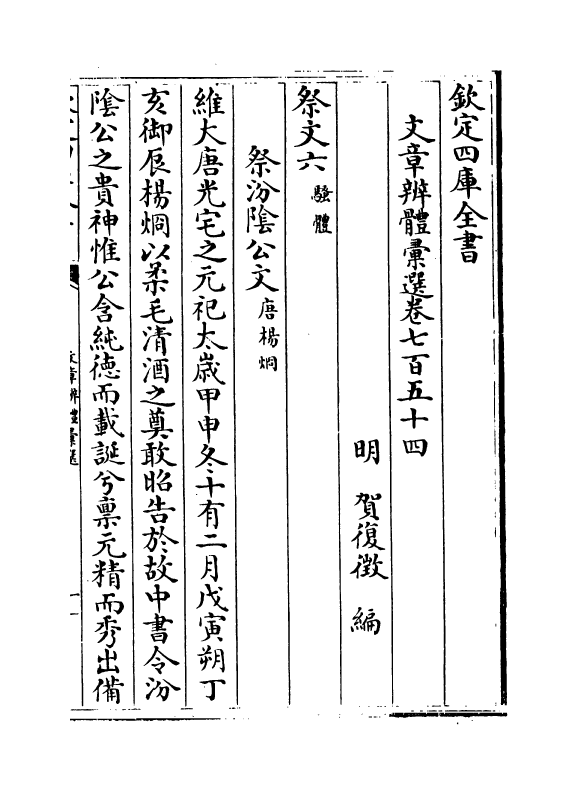 欽定四庫全書
文章辨體彙選卷七百五十四
明 賀復徵 編
祭文六 騷體
祭汾陰公文 唐楊烱
維大唐光宅之元祀太嵗甲申冬十有二月戊寅朔丁
亥御辰楊烱以柔毛清酒之奠敢昭告於故中書令汾
陰公之貴神惟公含純德而載誕兮禀元精而秀出備
文章辨體彙選
一